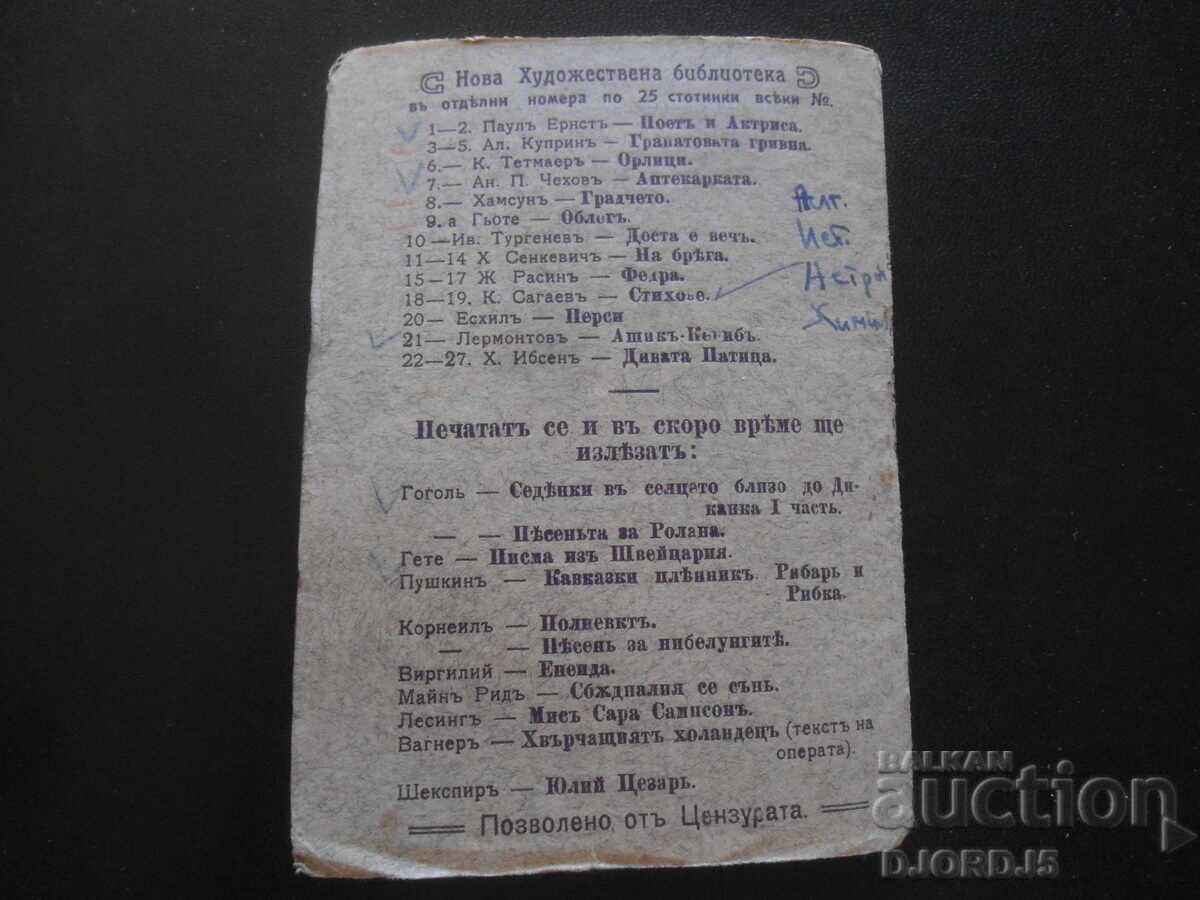 Нова Художествена библиотека
въ отдѣлни номера по 25 стотинки всѣки №.
1—2. Паулъ Ернстъ — Поетъ и Актриса.
3—5. Ал. Купринъ — Гранатовата гривна.
6.— К. Тетмаеръ — Орлици.
7.— Ан. П. Чеховъ — Аптекарката.
8.— Хамсунъ — Градчето.
9.а Гьоте — Облогъ.
10 —Ив. Тургеневъ — Доста е вечъ.
11—14 Х Сенкевичъ — На брѣга.
15—17 Ж Расинъ — Федра.
18—19. К. Сагаевъ — Стихове.
20— Есхилъ — Перси
21— Лермонтовъ — Ашикъ-Керибъ.
22—27. Х. Ибсенъ — Дивата Патица.
Алг.
Ист.
Астр
Хими
Печататъ се и въ скоро врѣме ще
излѣзатъ:
Гоголь — Седѣнки въ селцето близо до Ди-
канка I часть.
— — Пѣсеньта за Ролана.
Гете — Писма изъ Швейцария.
Пушкинъ — Кавказки плѣнникъ. Рибарь и
Рибка.
Корнеилъ — Полиевктъ.
— — Пѣсень за нибелунгитѣ.
Виргилий — Енеида.
Майнъ Ридъ — Сбѫдналия се сънь.
Лесингъ — Мисъ Сара Сампсонъ.
Вагнеръ — Хвърчащиятъ холандецъ (текстъ на
операта).
Шекспиръ — Юлий Цезарь.
Позволено отъ Цензурата.
BALKAN
auction
DJORDJ5